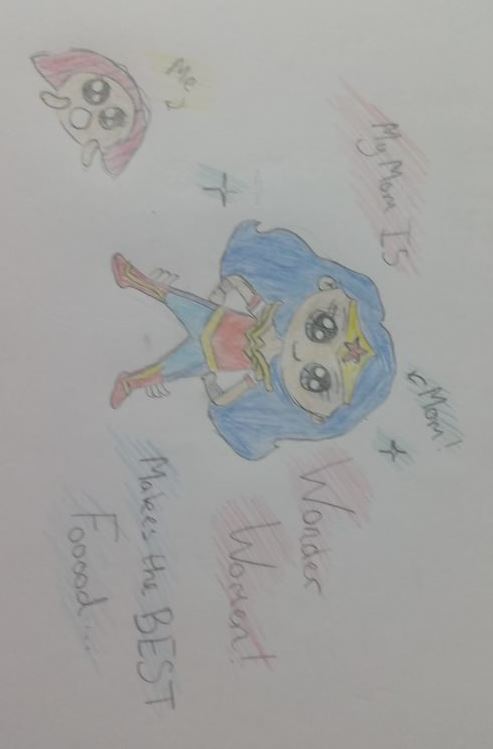 My Mom IS
Mom!
Me
Wonder
Women!
Makes the BEST
Fooood....